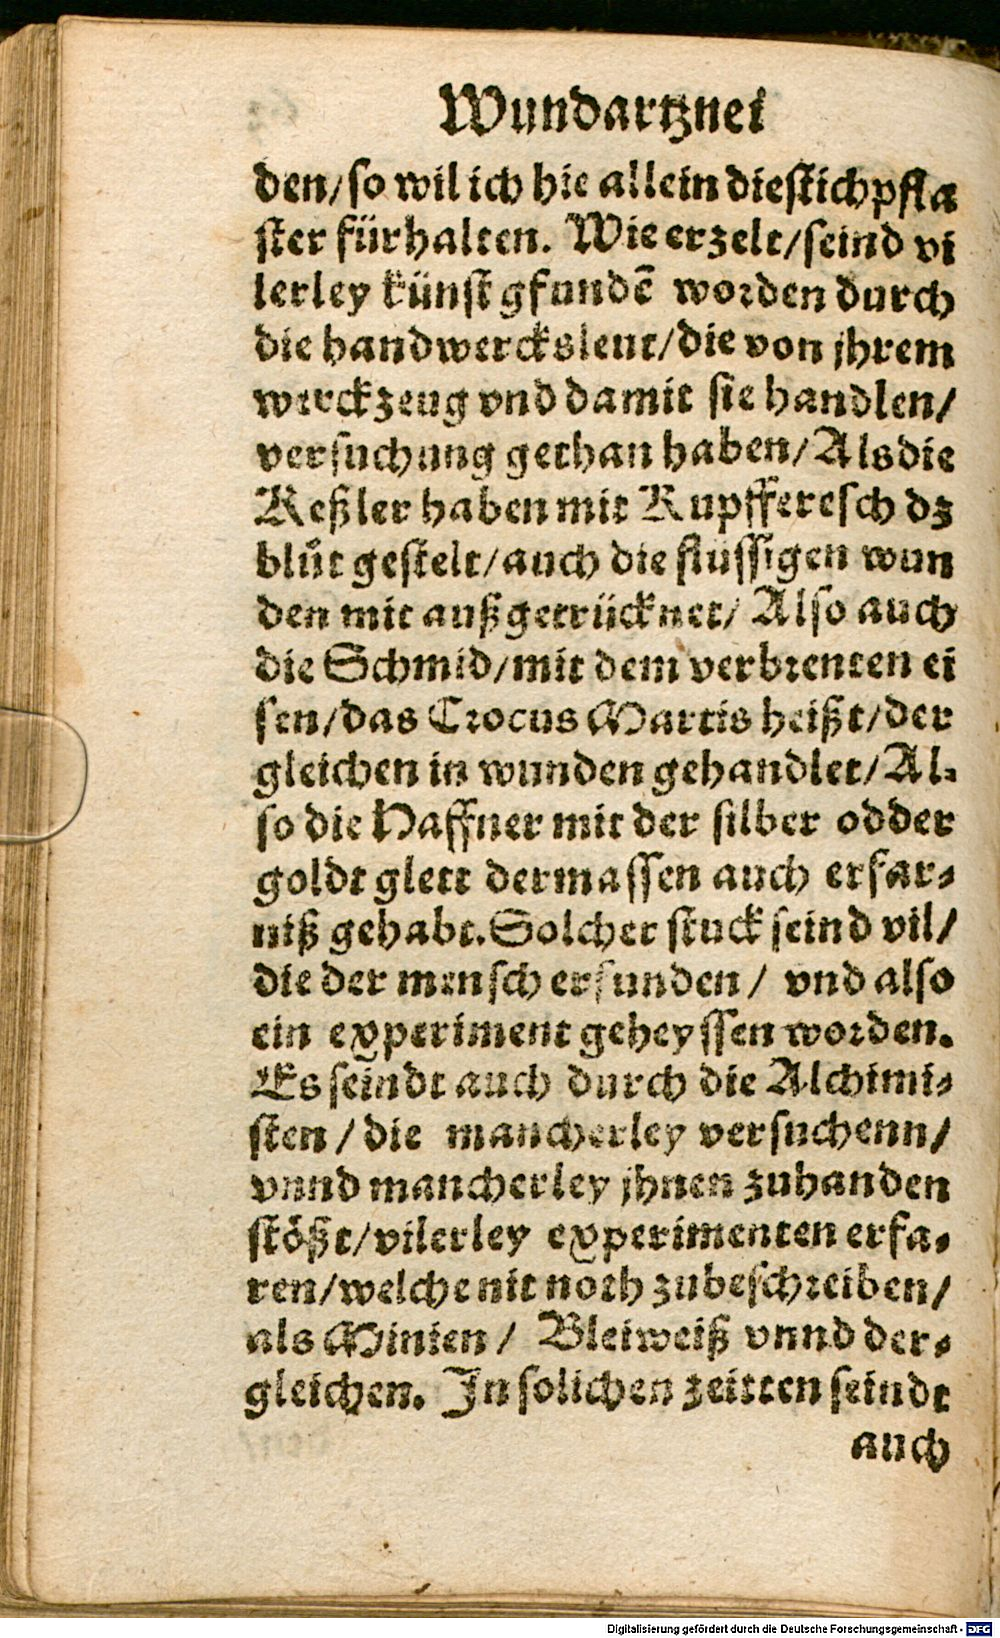 Wundartznei
den/so wil ich hie allein diestichpfla
ster fürhalten. Wie erzelt/seind vi
lerley künst gfundē worden durch
die handwercksleut/die von jhrem
werckzeug vnd damit sie handlen/
versuchung gethan haben/Als die
Keßler haben mit Kupfferesch dz
blůt gestelt/auch die flüssigen wun
den mit außgetrücknet/Also auch
die Schmid/mit dem verbrenten ei
sen/das Crocus Martis heißt/der
gleichen in wunden gehandlet/Al-
so die Haffner mit der silber odder
goldt glett dermassen auch erfar-
niß gehabt. Solcher stuck seind vil/
die der mensch erfunden/ vnd also
ein experiment geheyssen worden.
Es seindt auch durch die Alchimi-
sten / die mancherley versuchenn/
vnnd mancherley jhnen zuhanden
stößt/vilerley experimenten erfa-
ren/welche nit noth zubeschreiben/
als Minien / Bleiweiß vnnd der-
gleichen. In solichen zeitten seindt
auch
Digitalisierung gefördert durch die Deutsche Forschungsgemeinschaft - DFG